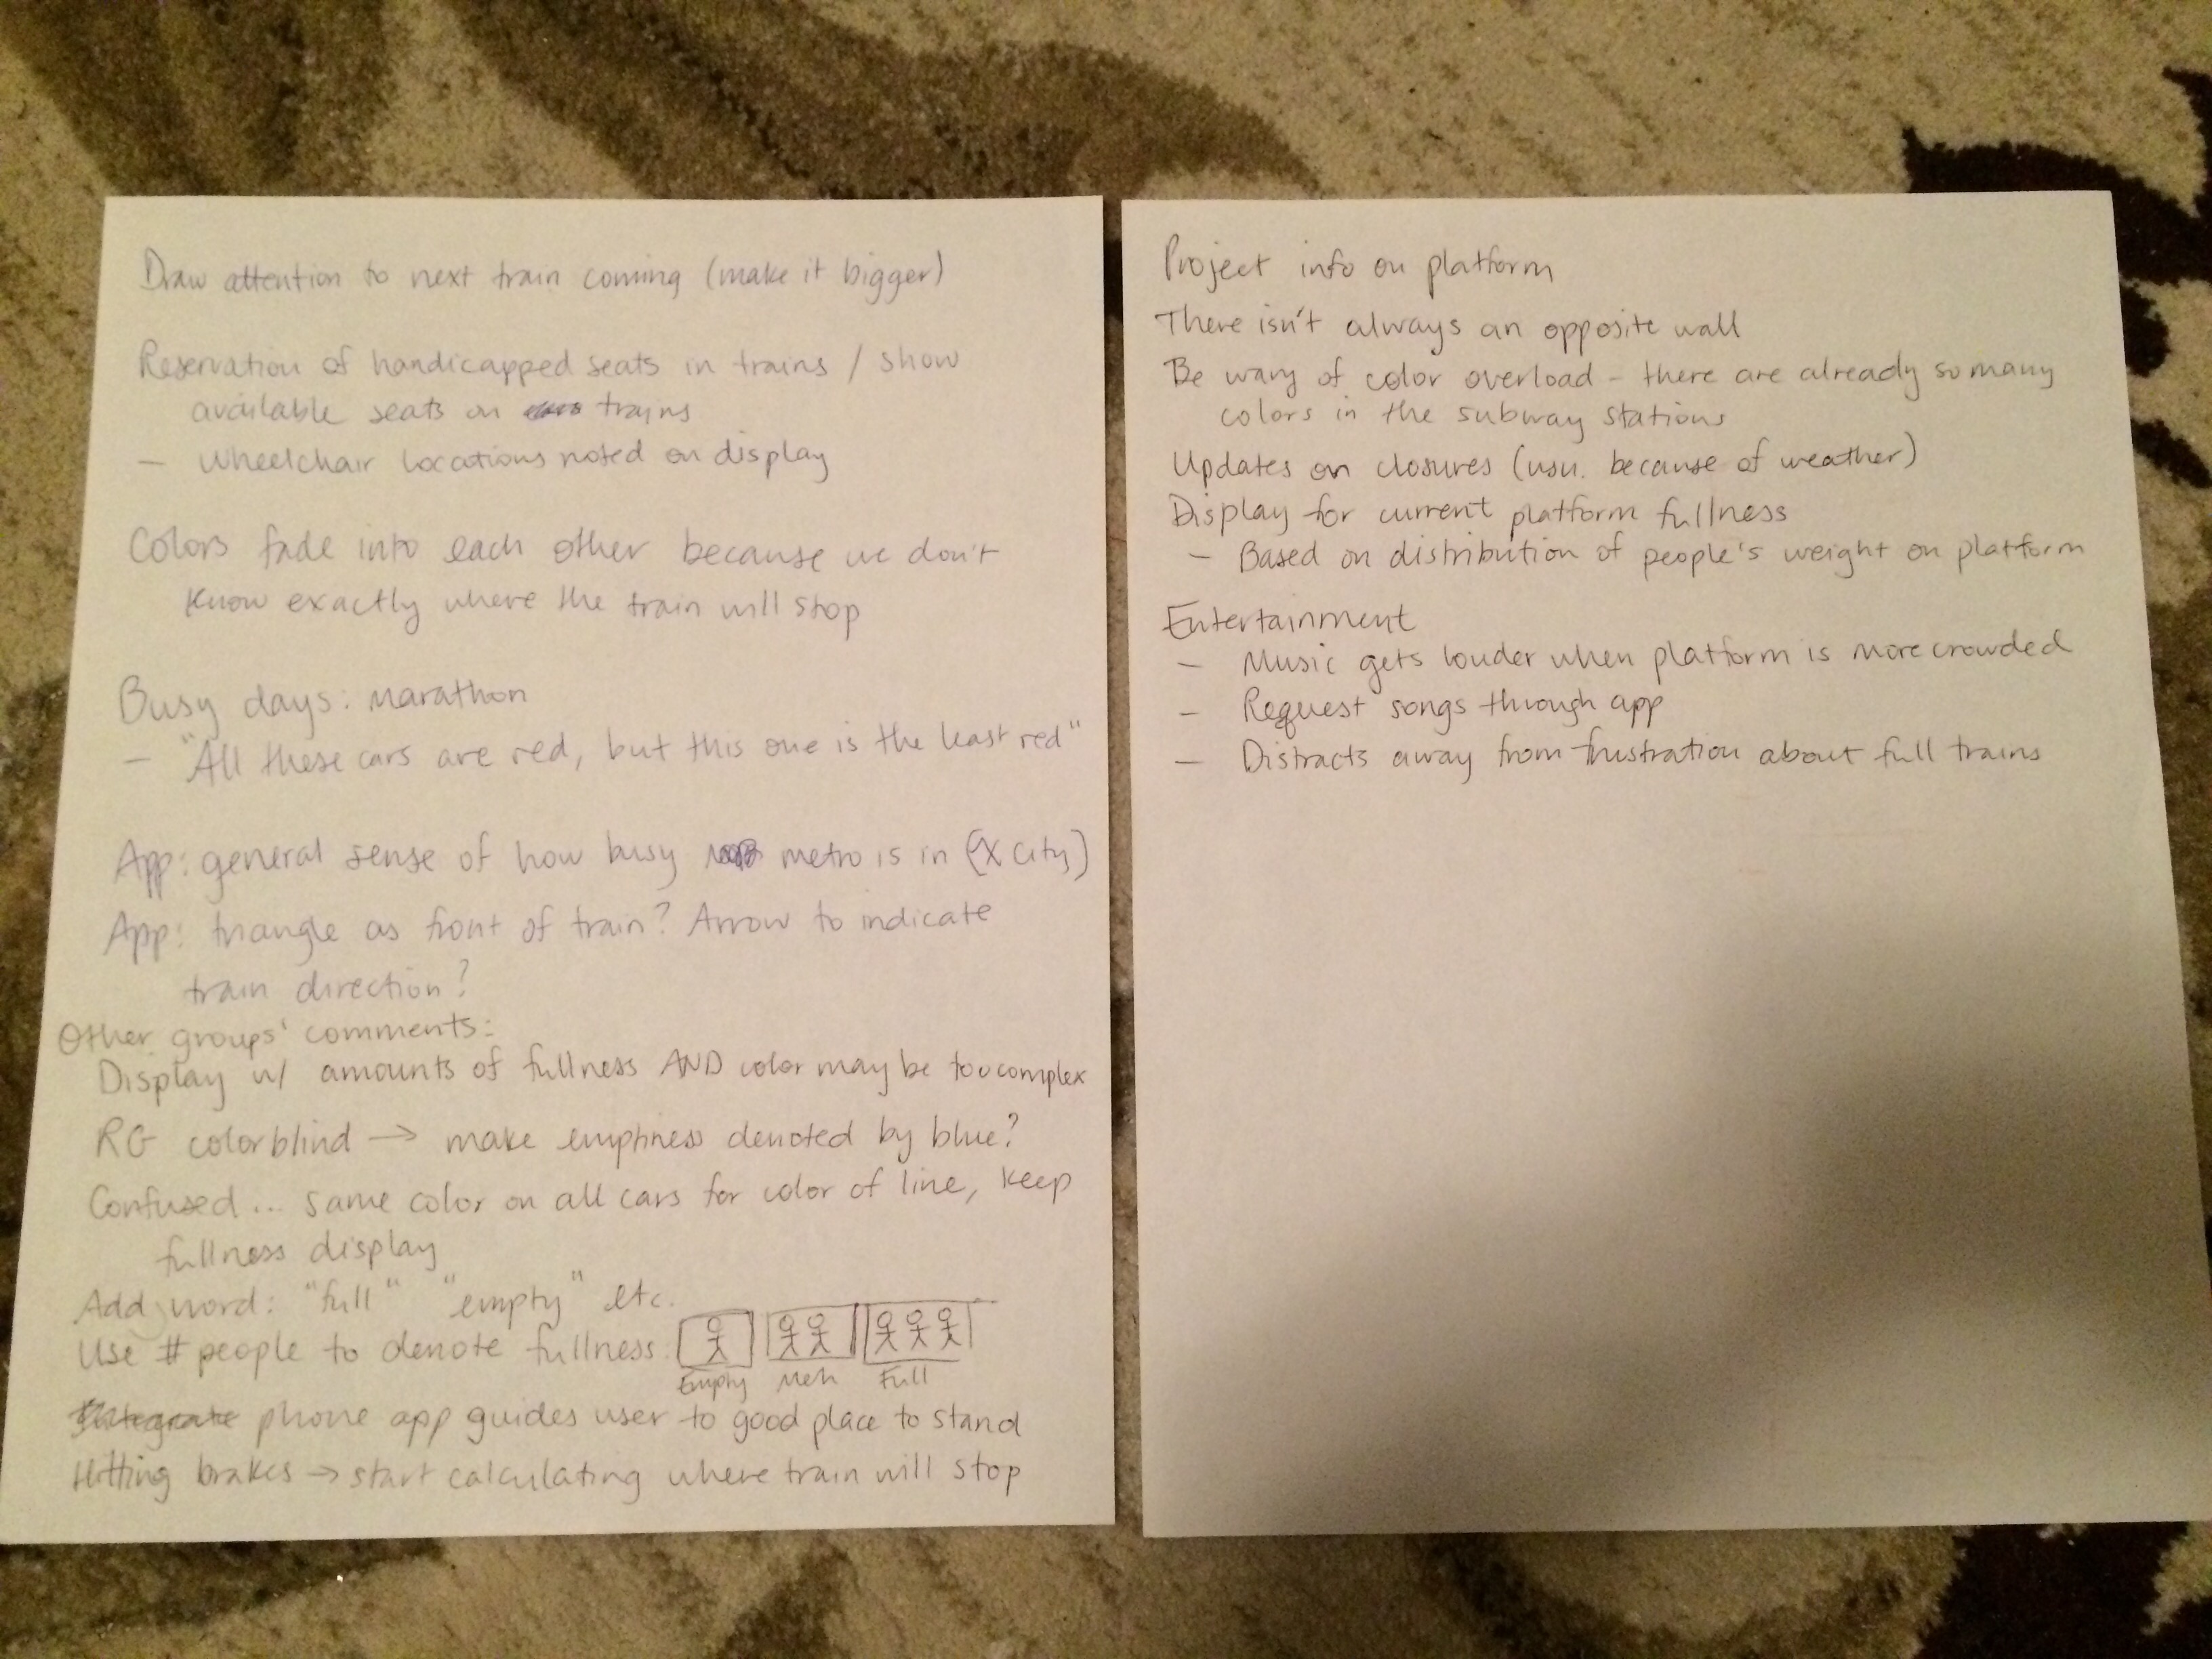 Draw attention to next train coming (make it bigger)
Reservation of handicapped seats in trains / show
available seats on trains
- Wheelchair locations noted on display
Colors fade into each other because we don't
know exactly where the train will stop
Busy days: marathon
- "All these cars are red, but this one is the least red"
App: general sense of how busy metro is in (X City)
App: triangle as front of train? Arrow to indicate
train direction?
Other groups' comments:
Display w/ amounts of fullness AND color may be too complex
RG colorblind → make emptiness denoted by blue?
Confused... same color on all cars for color of line, keep
fullness display
Add word: "full" "empty" etc.
Use # people to denote fullness:
Empty Meh Full
Integrate phone app guides user to good place to stand
Hitting brakes → start calculating where train will stop
Project info on platform
There isn't always an opposite wall
Be wary of color overload - there are already so many
colors in the subway stations
Updates on closures (usu. because of weather)
Display for current platform fullness
- Based on distribution of people's weight on platform
Entertainment
- Music gets louder when platform is more crowded
- Request songs through app
- Distracts away from frustration about full trains